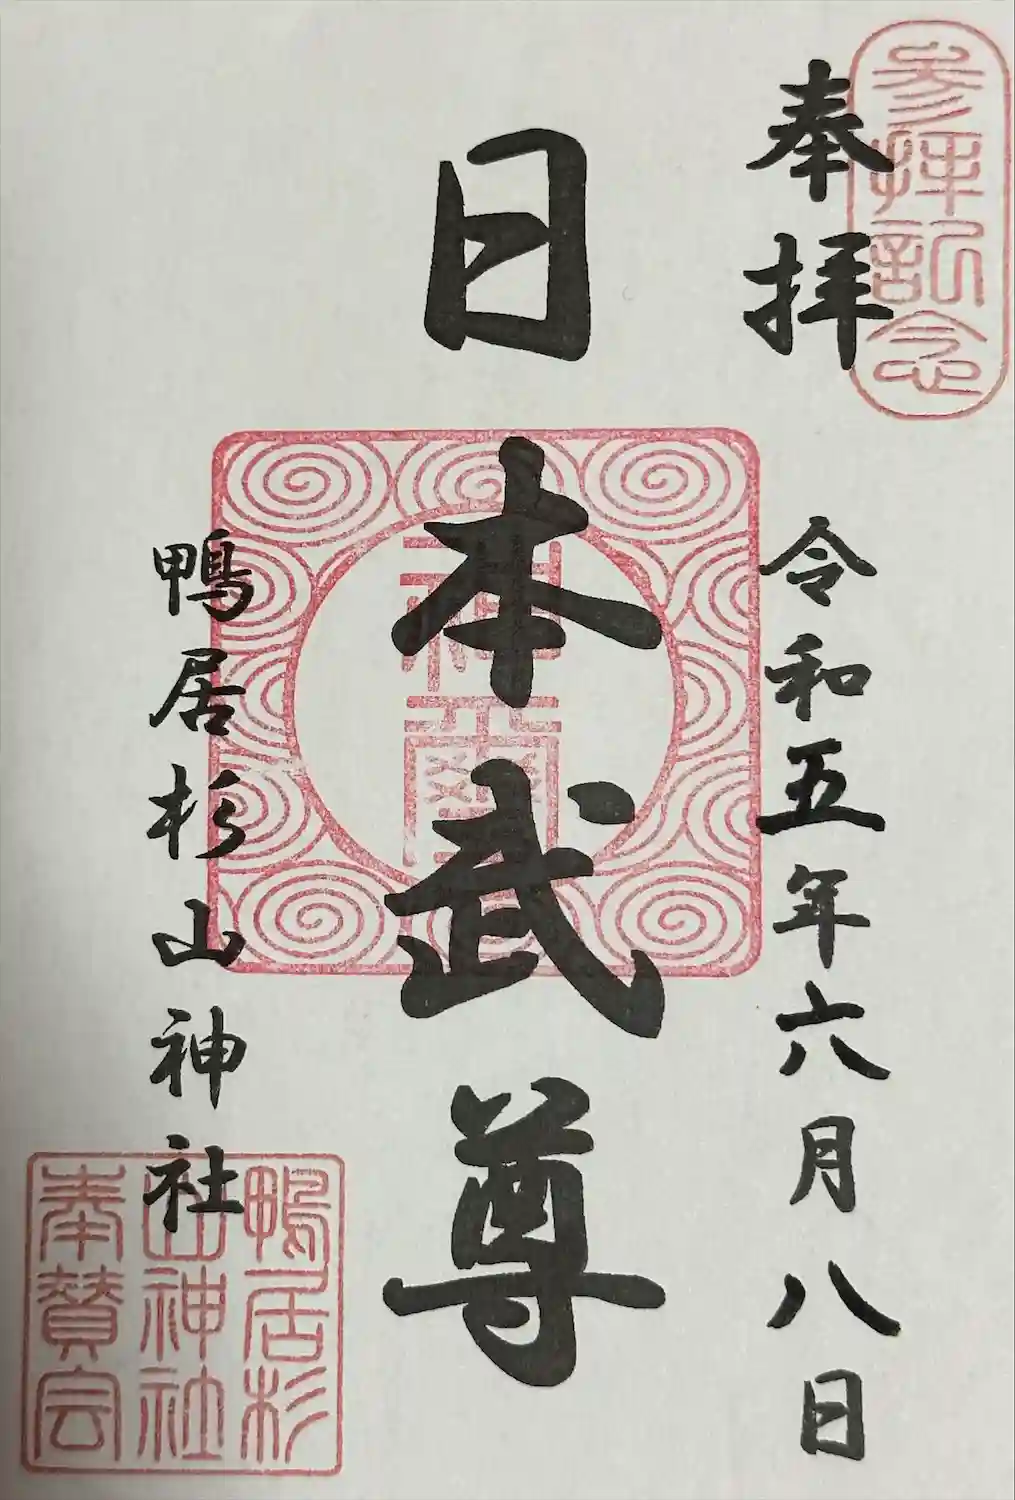 参拝記念
奉拝
令和五年六月八日
日本武尊
神璽
鴨居杉山神社
鴨居杉
山神社
奉賛会